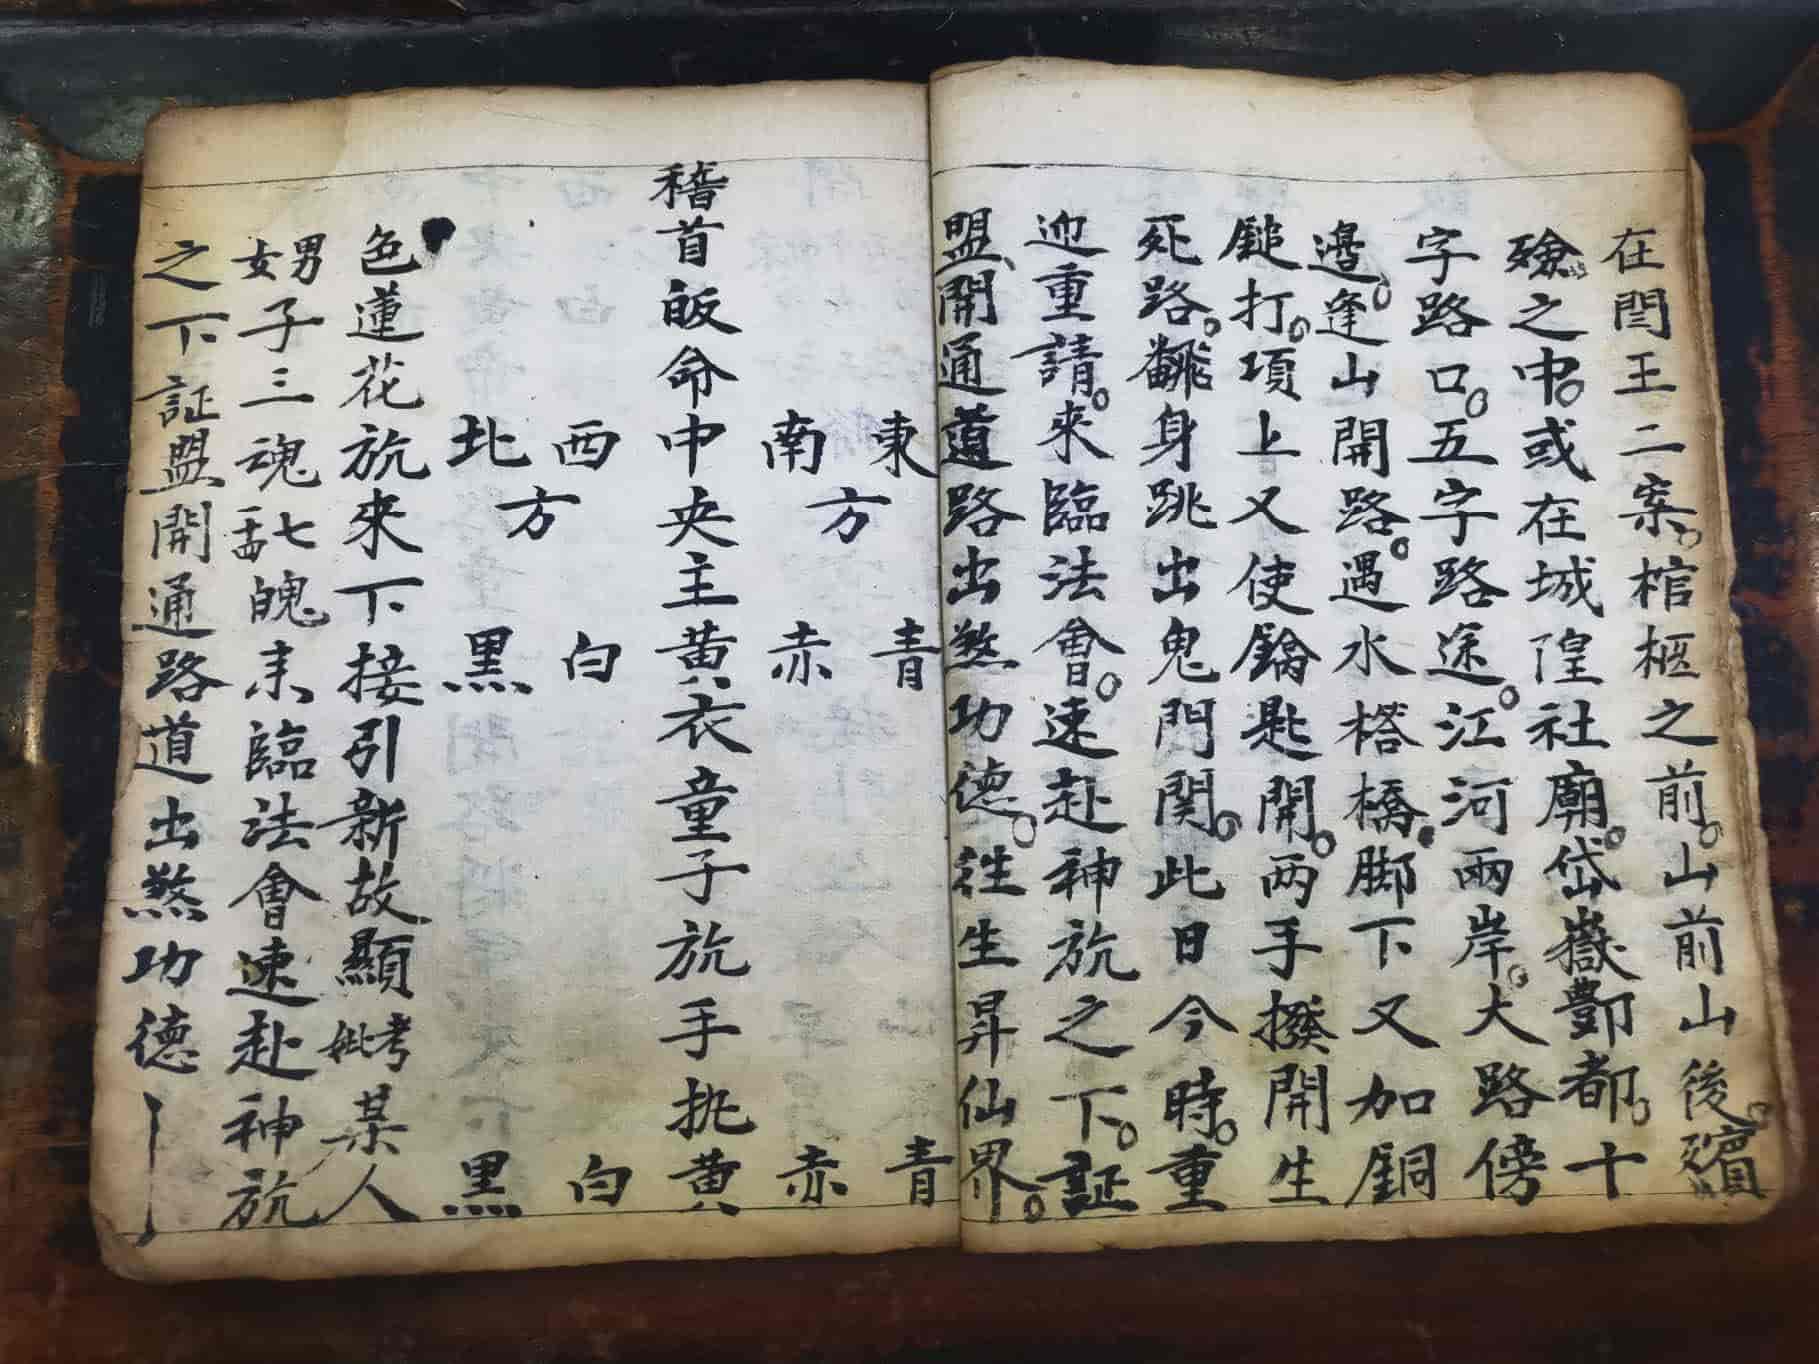 在閆王二案。棺柩之前。山前山後。殯
殮之中。或在城隍社廟。岱嶽酆都。十
字路口。五字路途。江河兩岸。大路傍
邉。逢山開路。遇水榙橋。脚下又加銅
鎚打。項上又使鑰匙開。两手撥開生
死路。翻身跳出鬼門関。此日今時。重
迎重請。來臨法會。速赴神斻之下。証
盟開通道路出煞功德。徃生昇仙界。
東 青 青
方
南 赤 赤
稽首皈命中央主黄衣童子斻手執黄
西 白 白
方
北 黑 黑
色蓮花斻來下接引新故顯考妣某人
男女子三魂七魄来臨法會速赴神斻
之下証盟開通路道出煞功德